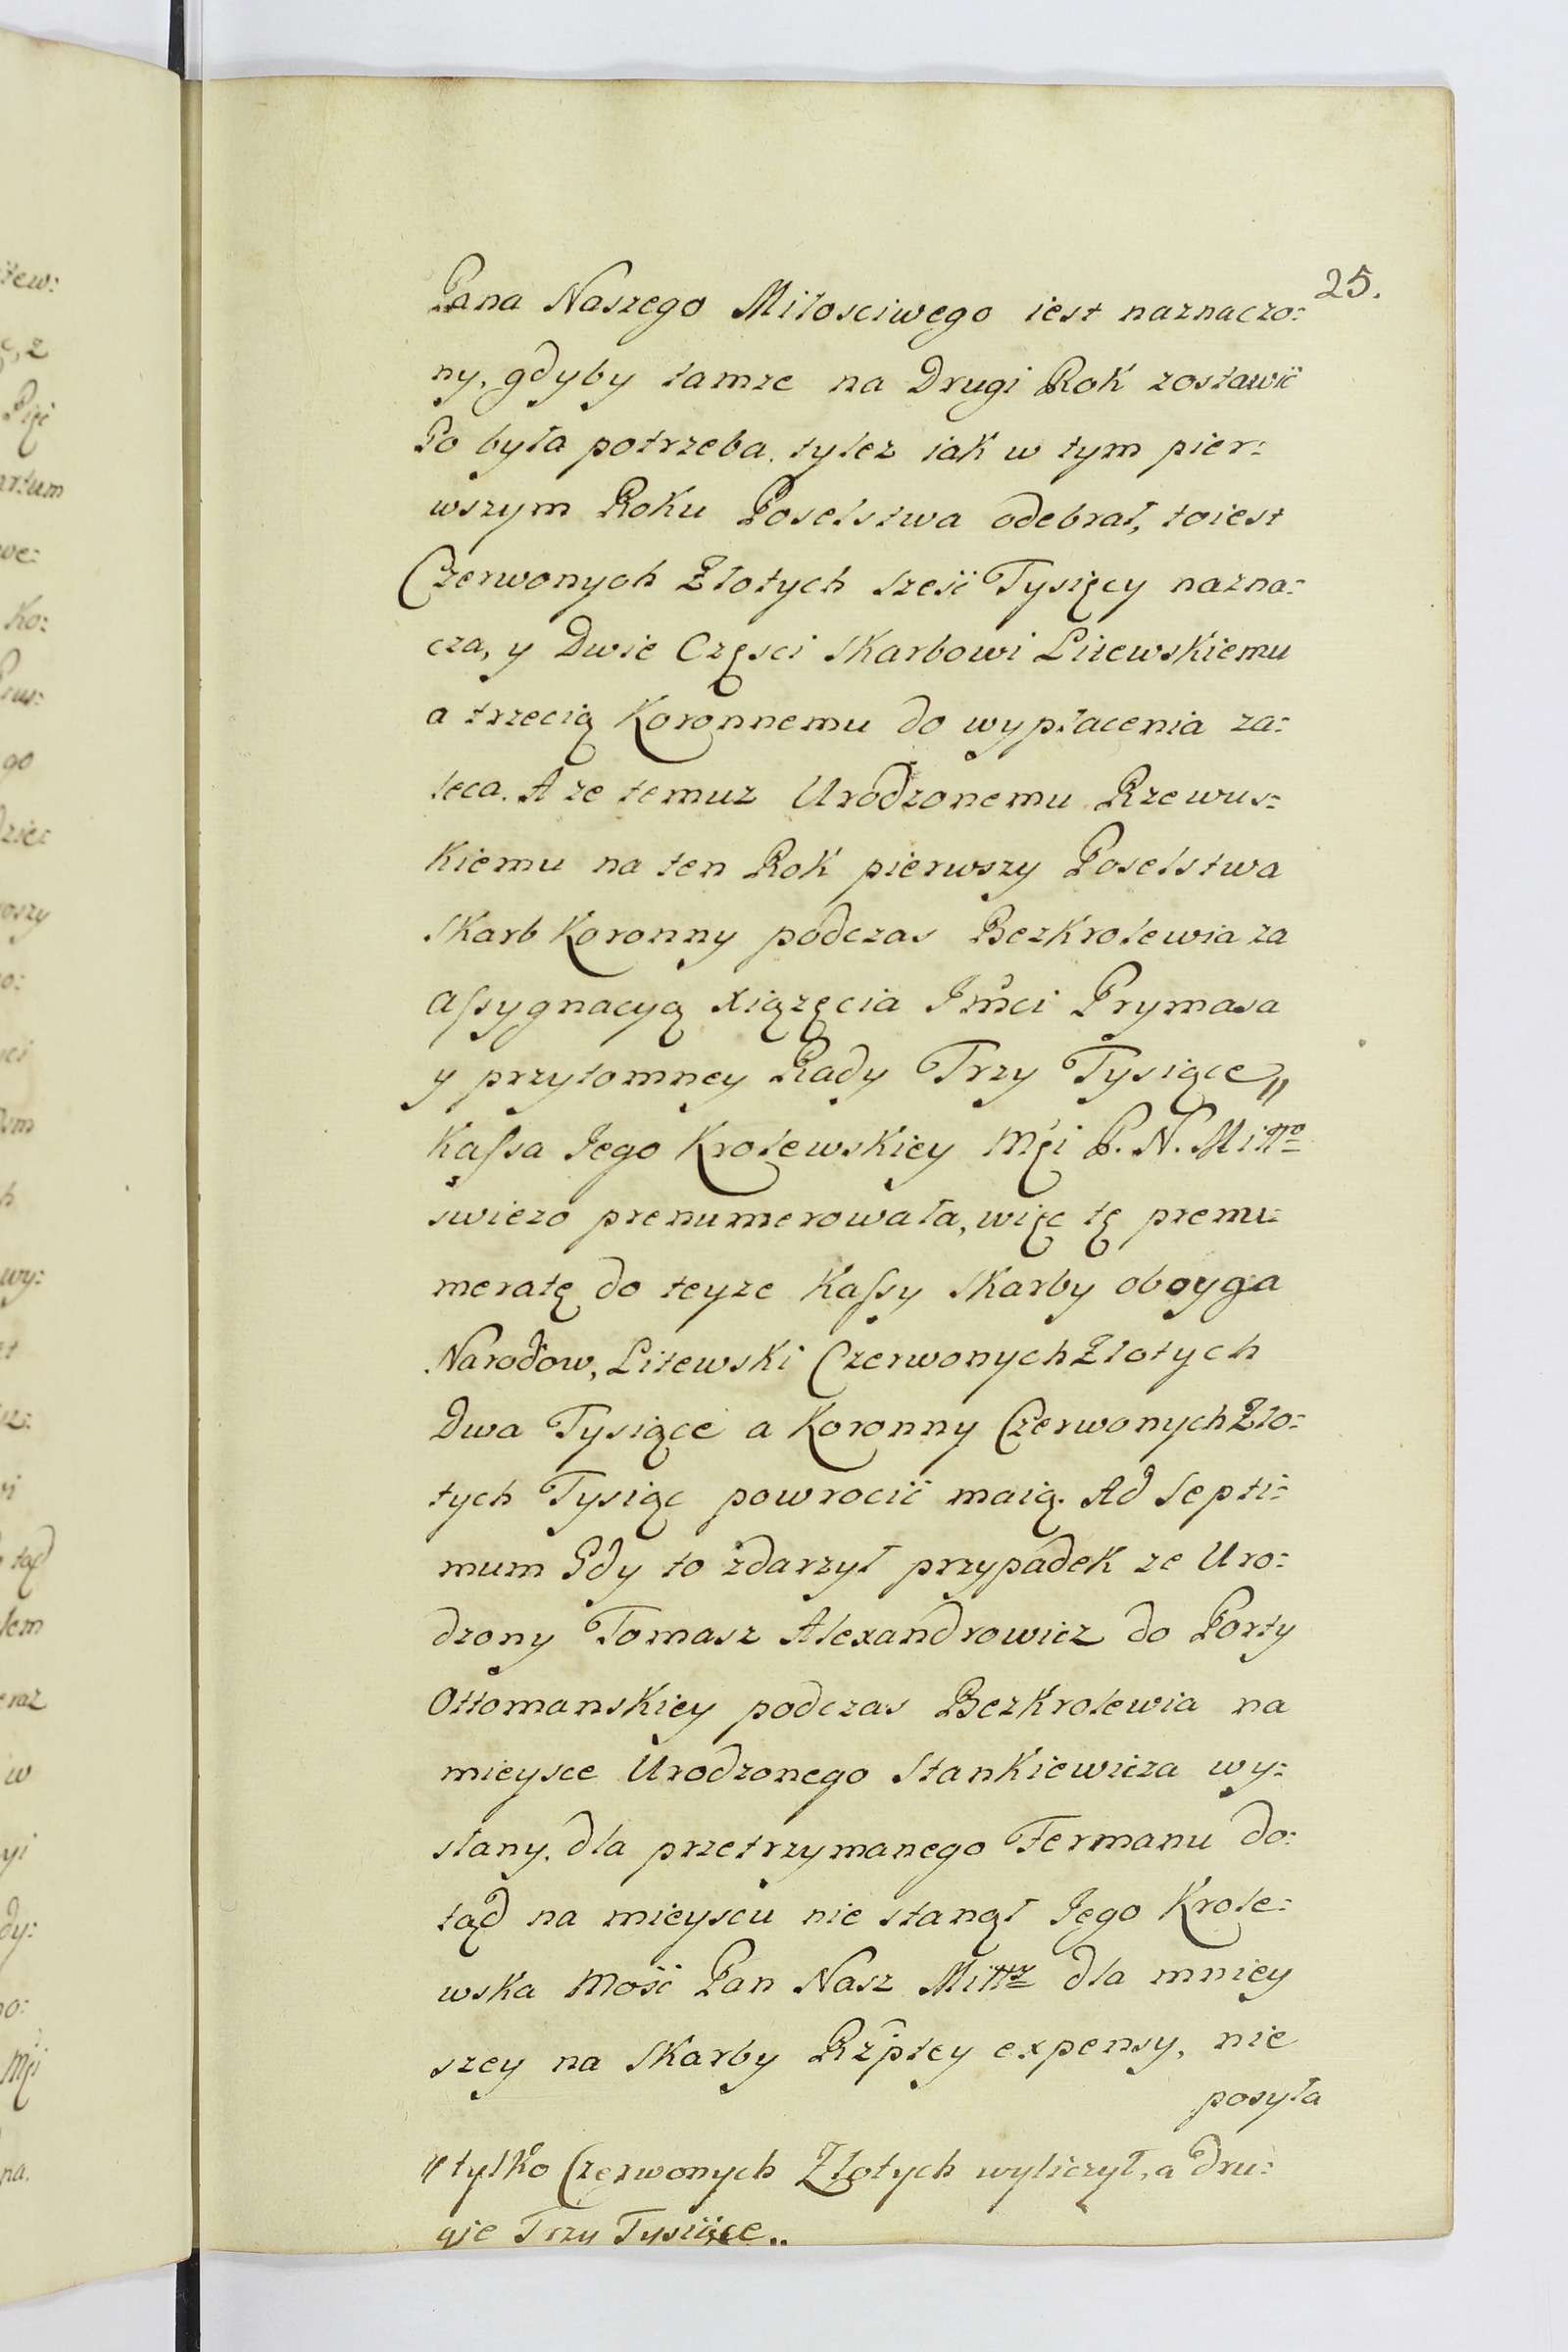 25.
Pana Naszego Miłosciwego iest naznaczo:
ny, gdyby tamze na Drugi Rok zostawić
Go była potrzeba, tylez iak w tym pier:
wszym Roku Poselstwa odebrał, toiest
Czerwonych Złotych sześć Tysięcy nazna:
cza, y Dwie Częsci Skarbowi Litewskiemu
a trzecią Koronnemu do wypłacenia za:
leca. A ze temuz Urodzonemu Rzewus:
kiemu na ten Rok pierwszy Poselstwa
Skarb Koronny podczas Bezkrolewia za
assygnacyą Xiązęcia Jmci Prymasa
y przytomney Rady Trzy Tysiące〃
Kassa Jego Krolewskiey Mci P. N. Miłło
swiezo prenumerowała, więc tę premu:
meratę do teyze Kassy Skarby oboyga
Narodow, Litewski Czerwonych Złotych
Dwa Tysiące a Koronny Czerwonych Zło:
tych Tysiąc powrocić maią. Ad Septi:
mum Gdy to zdarzył przypadek ze Uro:
dzony Tomasz Alexandrowicz do Porty
Ottomanskiey podczas Bezkrolewia na
mieysce Urodzonego Stankiewicza wy:
słany, dla przetrzymanego Fermanu do:
tąd na mieyscu nie stanął Jego Krole:
wska Mość Pan Nasz Miłłz dla mniey
szey na Skarby Rzptey expensy, nie
posyła
〃tylko Czerwonych Złotych wyliczył, a dru:
gie Trzy Tysiące..